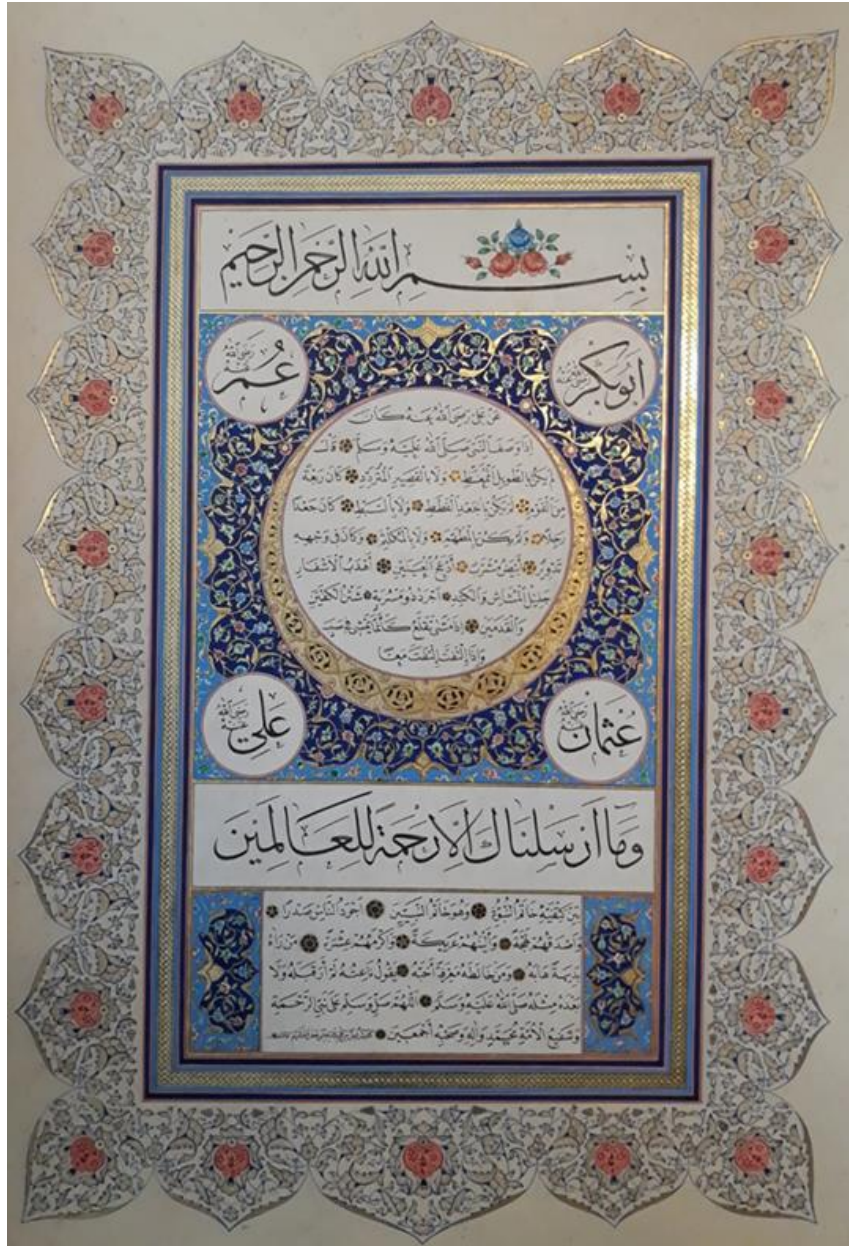 بِسْمِ اللّٰهِ الرَّحْمٰنِ الرَّحِيْمِ
ابُو بَكْر رَضِيَ اللّٰهُ عَنْهُ
عُمَر رَضِيَ اللّٰهُ عَنْهُ
عن علي رضي الله عنه كان
إذا وصف النبي صلى الله عليه وسلم قال
لم يكن بالطويل الممغط ولا بالقصير المتردد كان ربعة
من القوم لم يكن بالجعد القطط ولا بالسبط كان جعدا
رجلا ولم يكن بالمطهم ولا بالمكلثم وكان في وجهه
تدوير أبيض مشرب أدعج العينين أهدب الأشفار
جليل المشاش والكتد أجرد ذو مسربة شثن الكفين
والقدمين إذا مشى يتقلع كأنما يمشي في صبب
وإذا التفت التفت معا
عُثْمَان رَضِيَ اللّٰهُ عَنْهُ
عَلِي رَضِيَ اللّٰهُ عَنْهُ
وَمَا أَرْسَلْنَاكَ اِلَّا رَحْمَةً لِلْعَالَمِيْنَ
بين كتفيه خاتم النبوة وهو خاتم النبيين أجود الناس صدرا
وأصدقهم لهجة وألينهم عريكة وأكرمهم عشرة من رآه
بديهة هابه ومن خالطه معرفة أحبه يقول ناعته لم أر قبله ولا
بعده مثله صلى الله عليه وسلم اللهم صل وسلم على نبي الرحمة
وشفيع الأمة محمد وآله وصحبه أجمعين